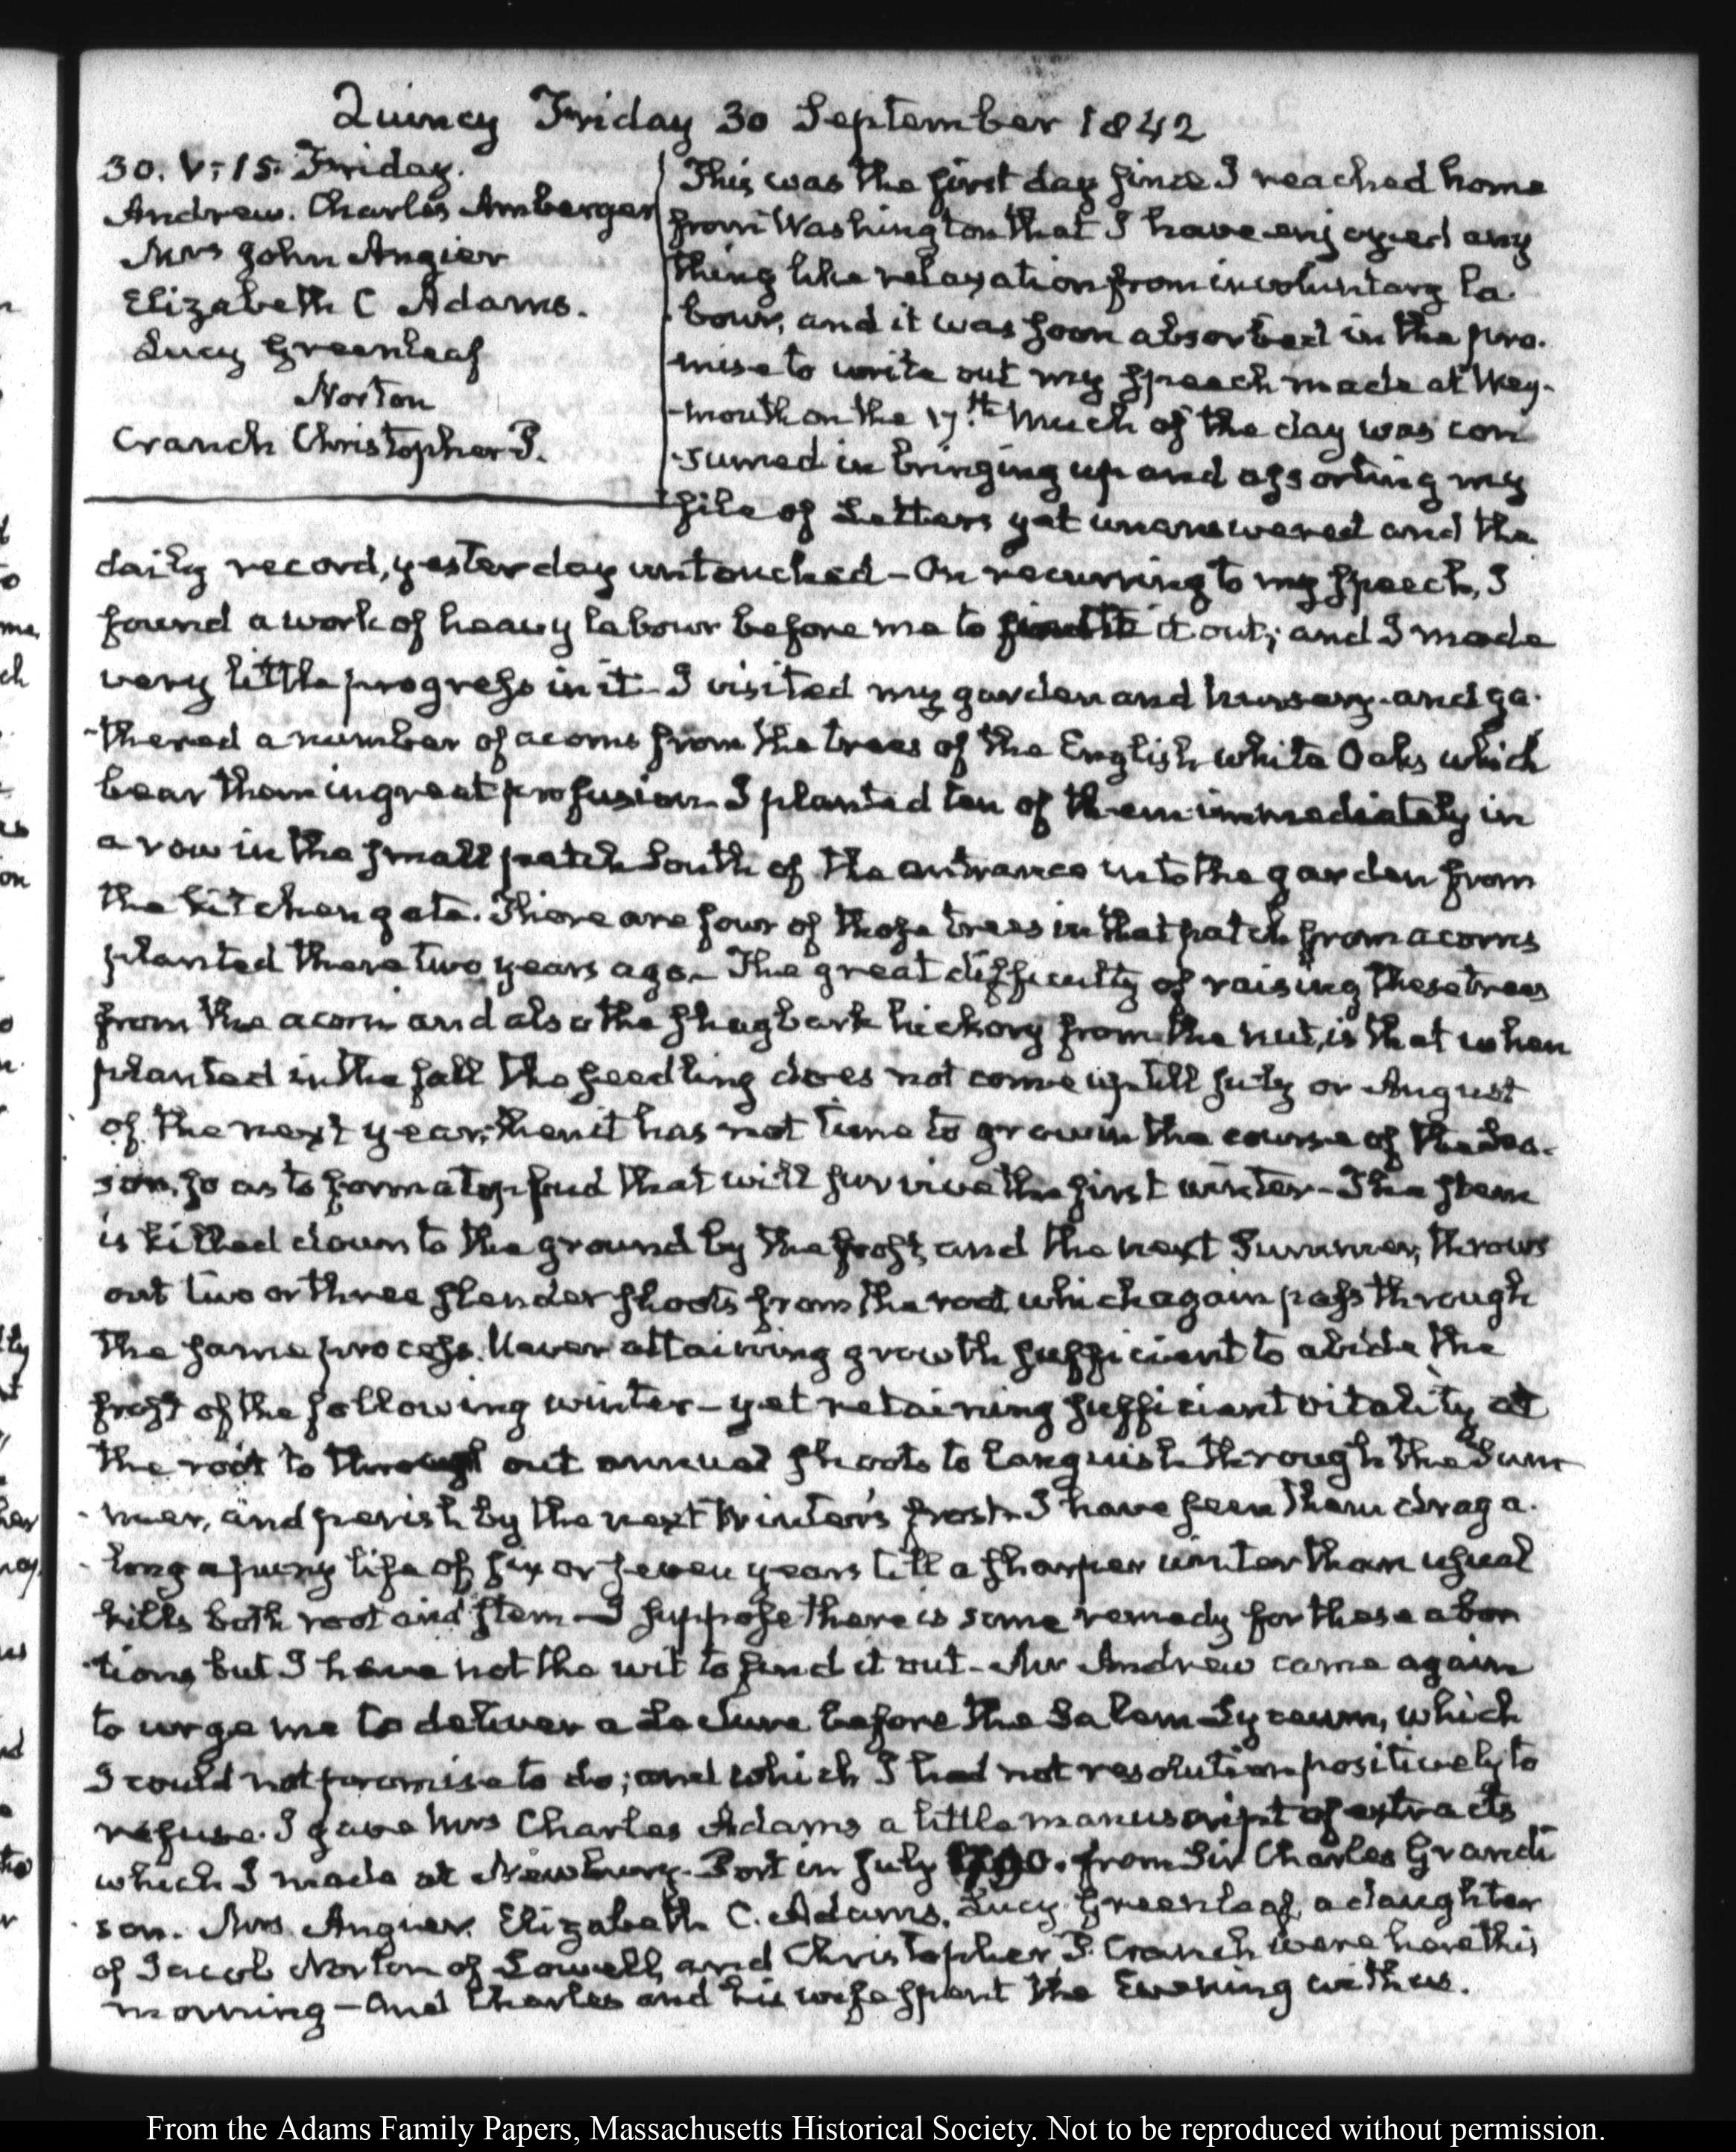 Quincy Friday 30 September 1842
30. V:15. Friday.
Andrew. Charles Amberger
Mrs John Angier
Elizabeth C Adams.
Lucy Greenleaf
Norton
Cranch Christopher P.
This was the first day since I reached home
from Washington that I have enjoyed any
thing like relaxation from involuntary la-
bour, and it was soon absorbed in the pro-
mise to write out my speech made at Wey-
-mouth on the 17th. Much of the day was con
-sumed in bringing up and assorting my
file of Letters yet unanswered and the
daily record, yesterday untouched - On recurring to my speech, I
found a work of heavy labour before me to it out; and I made
very little progress in it - I visited my garden and nursery - and ga-
-thered a number of acorns from the trees of the English white Oaks which
bear them in great profusion - I planted ten of them immediately in
a row in the small patch South of the entrance into the garden from
the kitchen gate. There are four of those trees in that patch from acorns
planted there two years ago - The great difficulty of raising these trees
from the acorn and also the shagbark hickory from the nut, is that when
planted in the fall the seedling does not come up till July or August
of the next year; then it has not time to grow in the course of the Sea-
son, so as to form a top that will survive the first winter - The stem
is killed down to the ground by the frost, and the next Summer, throws
out two or three slender shoots from the root which again pass through
the same process. Never attaining growth sufficient to abide the
frost of the following winter - yet retaining sufficient vitality at
the root to out annual shoots to languish through the Sum
-mer, and perish by the next Winter's frost - I have seen them drag a-
-long a puny life of six or seven years till a sharper winter than usual
kills both root and stem - I suppose there is some remedy for these abor
-tions but I have not the wit to find it out - Mr Andrew came again
to urge me to deliver a Lecture before the Salem Lyceum, which
I could not promise to do; and which I had not resolution positively to
refuse. I gave Mrs Charles Adams a little manuscript of extracts
which I made at Newbury-Port in July 1790. from Sir Charles Grandi
son. Mrs Angier. Elizabeth C. Adams, Lucy Greenleaf, a daughter
of Jacob Norton of Lowell, and Christopher P. Cranch were here this
morning - And Charles and his wife spent the Evening with us.
From the Adams Family Papers, Massachusetts Historical Society. Not to be reproduced without permission.